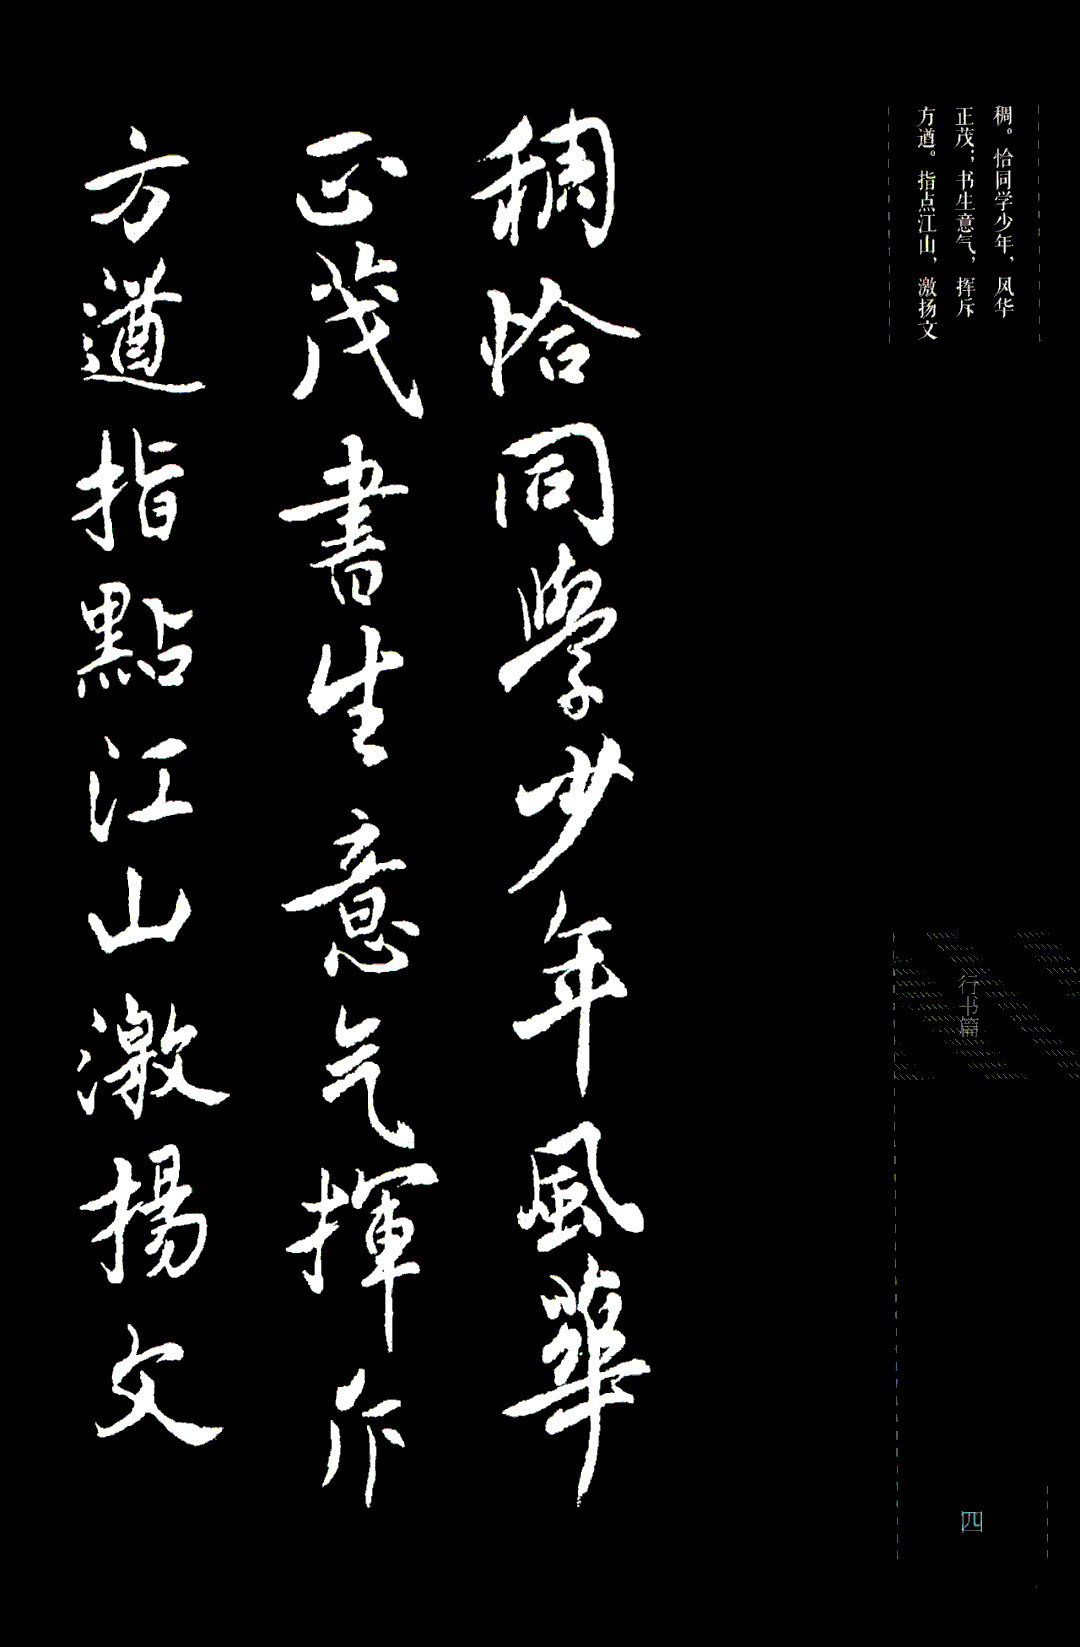 稠。恰同学少年，风华
正茂；书生意气，挥斥
方遒。指点江山，激扬文
行书篇
四
稠恰同學少年風華
正茂書生意气揮斥
方遒指點江山激揚文